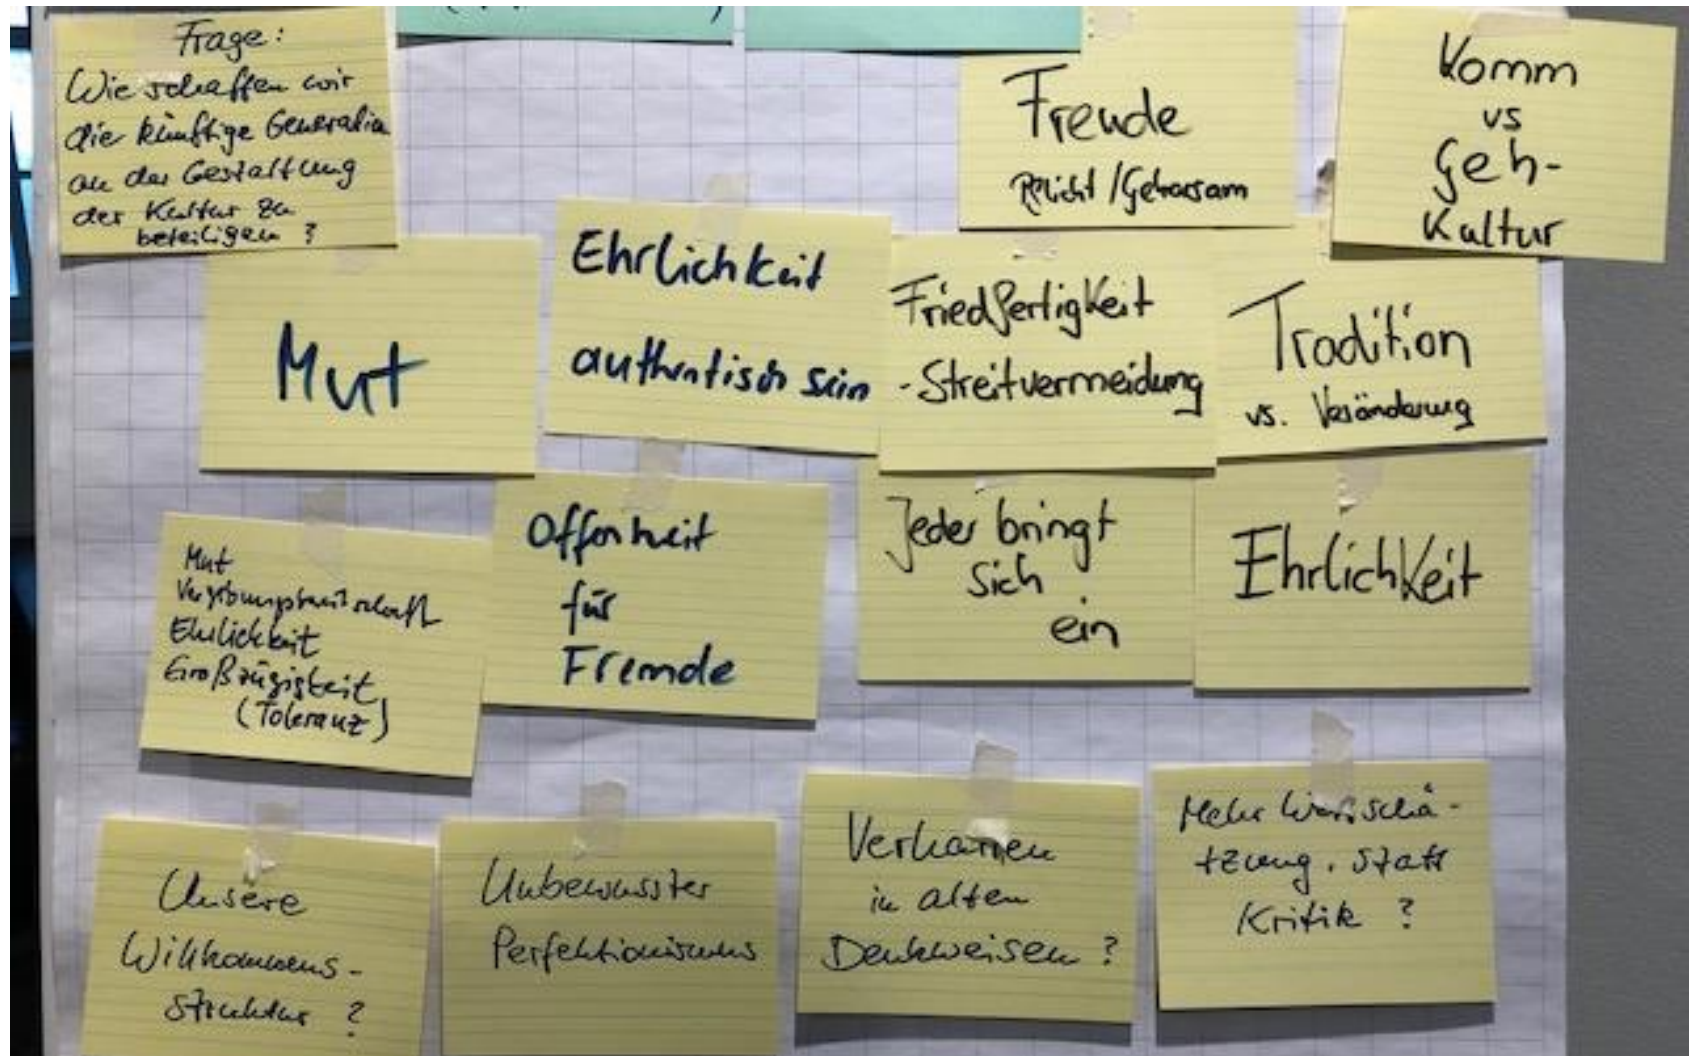 Frage:
Wie schaffen wir
die künftige Generation
an der Gestaltung
der Kultur zu
beteiligen ?
Freude
Pflicht /Gehorsam
Komm
vs
Geh-
Kultur
Mut
Ehrlichkeit
authentisch sein
Friedfertigkeit
-Streitvermeidung
Tradition
vs. Veränderung
Mut
Vergebungsbereitschaft
Ehrlickeit
Großzügigkeit
(Toleranz)
Offenheit
für
Fremde
Jeder bringt
sich
ein
Ehrlichkeit
Unsere
Willkommens-
struktur ?
Unbewusster
Perfektionismus
Verharren
in alten
Denkweisen ?
Mehr Wertschä-
tzung, statt
Kritik ?